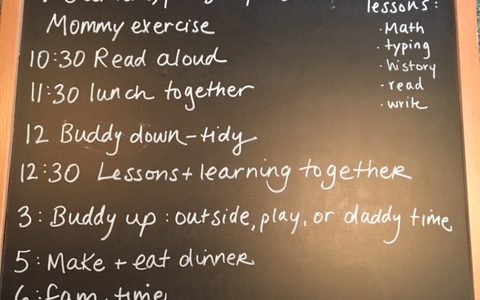 Mommy exercise
10:30 Read aloud
11:30 lunch together
12 Buddy down-tidy
12:30 Lessons + learning together
3: Buddy up: outside, play, or daddy time
5: Make + eat dinner
6: fam. time
lessons:
· Math
· typing
· history
· read
· write